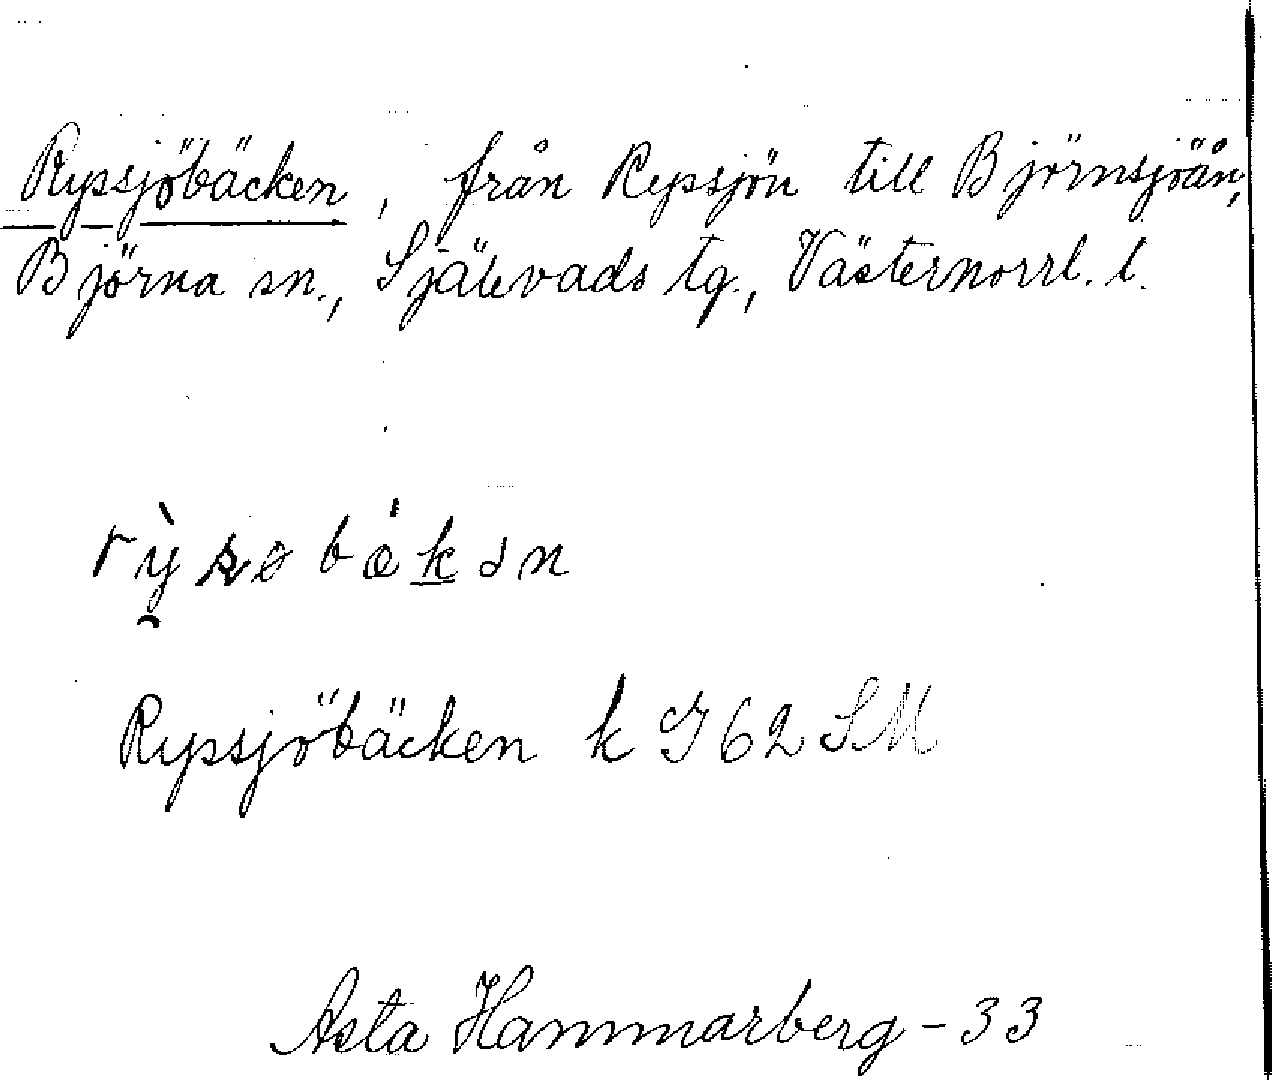 Rypsjöbäcken, från Rypsjön till Björnsjöån,
Björna sn., Själevads tg., Västernorrl. l.
Rypsjöbäcken k J62 SM
Asta Hammarberg - 33